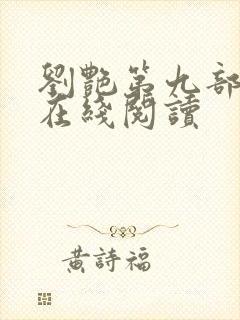 劉艷第九部
在綫閱讀
黃詩福